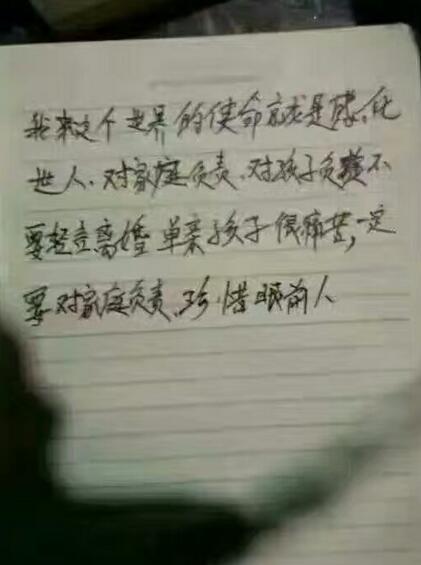 我来这个世界的使命就是感化
世人、对家庭负责、对孩子负责不
要轻言离婚单亲孩子很痛苦,一定
要对家庭负责、珍惜眼前人